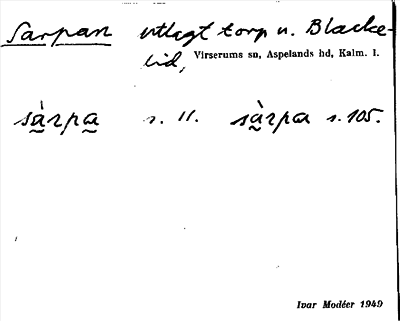 Sarpan utlagt torp u. Blacke-
lid, Virserums sn, Aspelands hd, Kalm. l.
sàrpa s. 11. sàrpa s. 105.
Ivar Modéer 1949